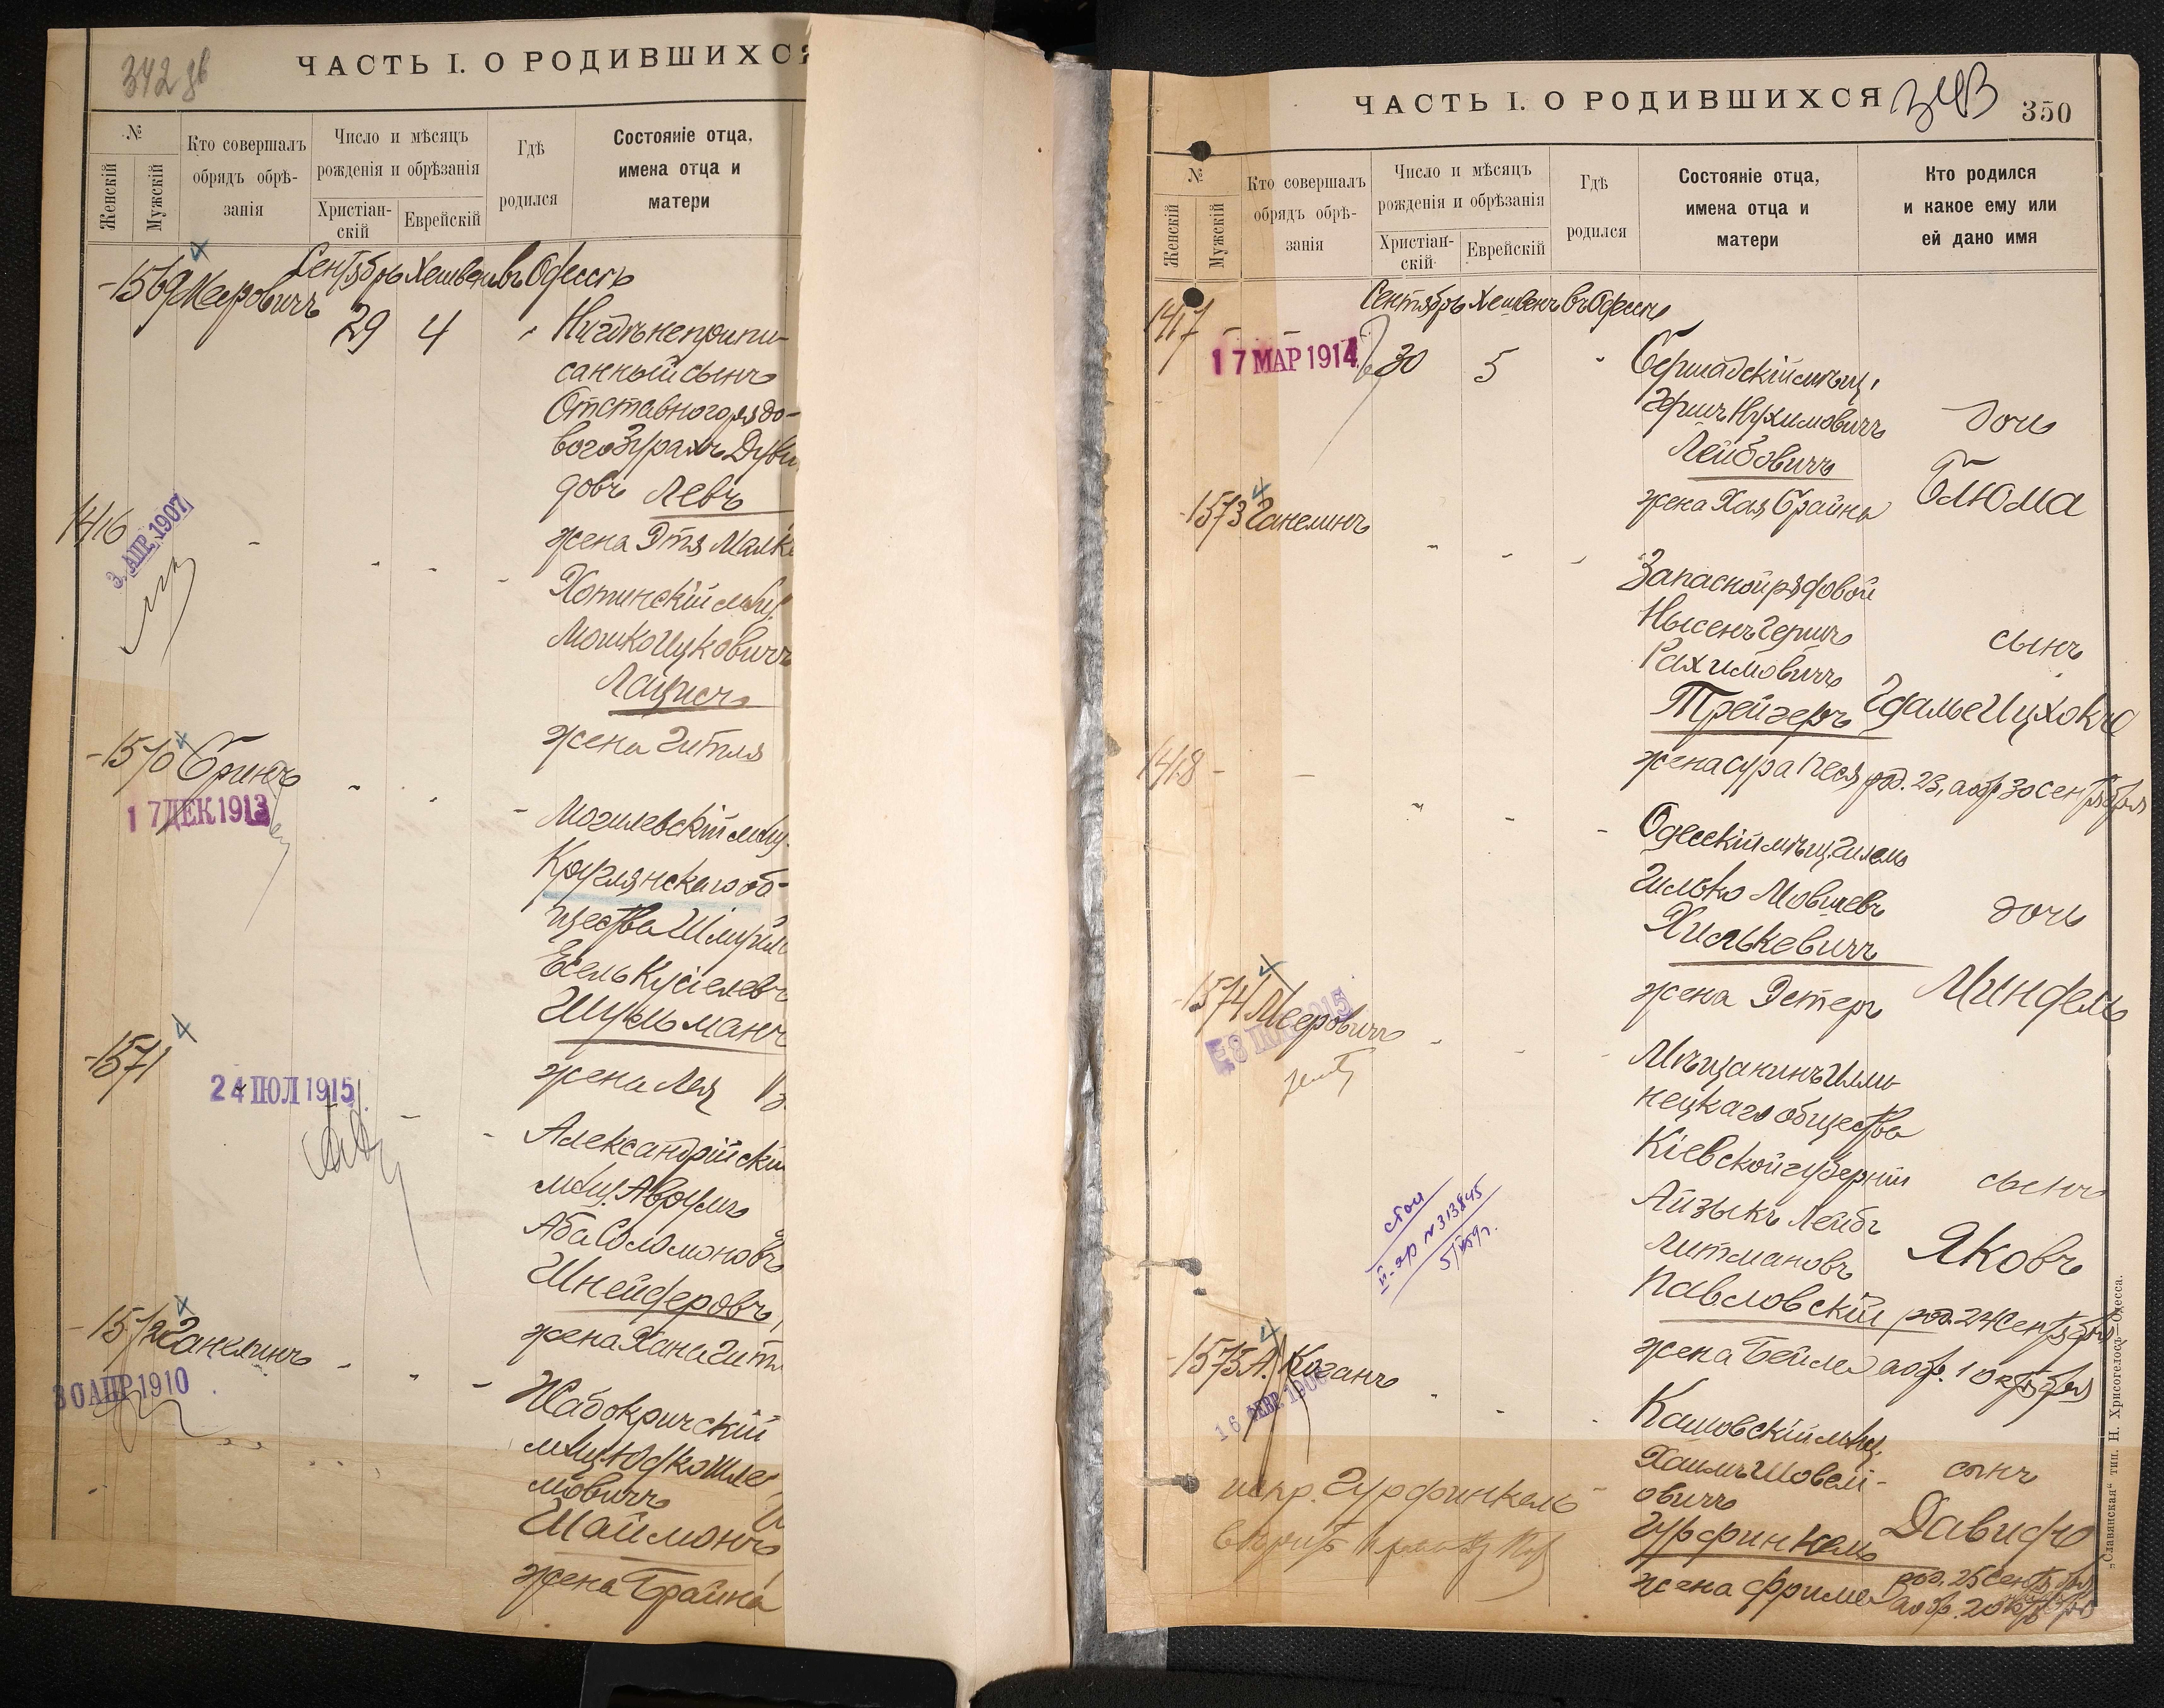 342 об
ЧАСТЬ I. О РОДИВШИХСЯ
№
Женскій
Мужскій
Кто совершалъ
обрядъ обрѣ-
занія
Число и мѣсяцъ
рожденія и обрѣзанія
Христіан-
скій
Еврейскій
Гдѣ
родился
Состояніе отца,
имена отца и
матери
Сентябрь Хешвенъ въ Одессѣ
1569 Мееровичъ
29 4
Нигдѣ не припи-
санный сынъ
Отставного рядо-
вого Зурахъ Дуви
довъ Левъ
жена Этя Малка
1416
3. АПР. 1907
Хотинскій мѣщ.
Мошко Ицковичъ
Лацисъ
жена Гитля
1570 Бринъ
17 ДЕК 1913
Могилевскій мѣщ.
Круглянскаго об-
щества Шмуйл
Есель Кусіелевъ
Шульманъ
жена Лея
1571
24 ІЮЛ 1915
Александрійскій
мѣщ. Аврумъ
Аба Соломоновъ
Шнейферовъ,
жена Хана Гитл
1572 Ганелинъ
30 АПР 1910
Жабокричскій
мѣщ. Юдко Шле
мовичъ
Шаймонъ
жена Брайна
ЧАСТЬ I. О РОДИВШИХСЯ
343
350
№
Женскій
Мужскій
Кто совершалъ
обрядъ обрѣ-
занія
Число и мѣсяцъ
рожденія и обрѣзанія
Христіан-
скій
Еврейскій
Гдѣ
родился
Состояніе отца,
имена отца и
матери
Кто родился
и какое ему или
ей дано имя
Сентябрь Хешвенъ въ Одессѣ
1417
17 МАР 1914
30 5
Бершадскій мѣщ.
Гершъ Нухимовичъ
Лейбовичъ
жена Хая Брайна
дочь
Блюма
1573 Ганелинъ
Запасной рядовой
Нысенъ Гершъ
Рахимовичъ
Трейгеръ
жена Сура Песя
сынъ
Гдалье Ицхокъ
род. 23, а обр. 30 сентября
1418
Одесскій мѣщ. Гилель
Гилько Мовшевъ
Хилькевичъ
жена Эстеръ
дочь
Миндель
1574 Мееровичъ
Мѣщанинъ Илли-
нецкаго общества
Кіевской губерніи
Айзыкъ Лейбъ
Литмановъ
Павловскій
жена Бейла
сынъ
Яковъ
род. 24 Сентября
а обр. 1 октября
№ 313845
1575 А. Коганъ
16 ФЕВР. 190
Кашовскій мѣщ.
Хаимъ Шовель-
овичъ
Гурфинкель
жена Фрима
сынъ
Давидъ
род. 25 Сентября
а обр. 2 октября
испр. Гурфинкель
„Славянская“ тип. Н. Хрисогелосъ—Одесса.